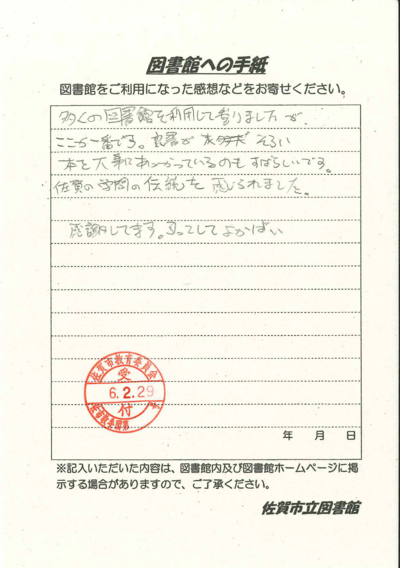 図書館への手紙
図書館をご利用になった感想などをお寄せください。
多くの図書館を利用して参りましたが、
ここが一番です。良書が そろい
本を大事にあつかっているのもすばらしいです。
佐賀の学問の伝統を感じられました。
感謝してます。 してよかばい
佐賀市教育委員会
受
6.2.29
付
年 月 日
※記入いただいた内容は、図書館内及び図書館ホームページに掲
示する場合がありますので、ご了承ください。
佐賀市立図書館